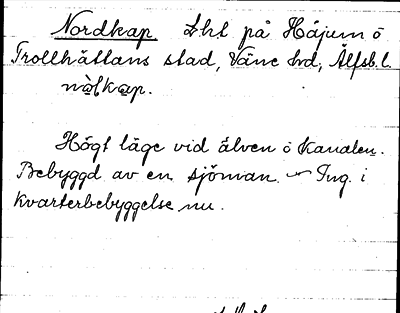 Nordkap Lht på Håjum ö
Trollhättans stad, Väne hd, Älfsb. l.
Högt läge vid älven ö kanalen.
Bebyggd av en sjöman. – Ing. i
kvarterbebyggelse nu.